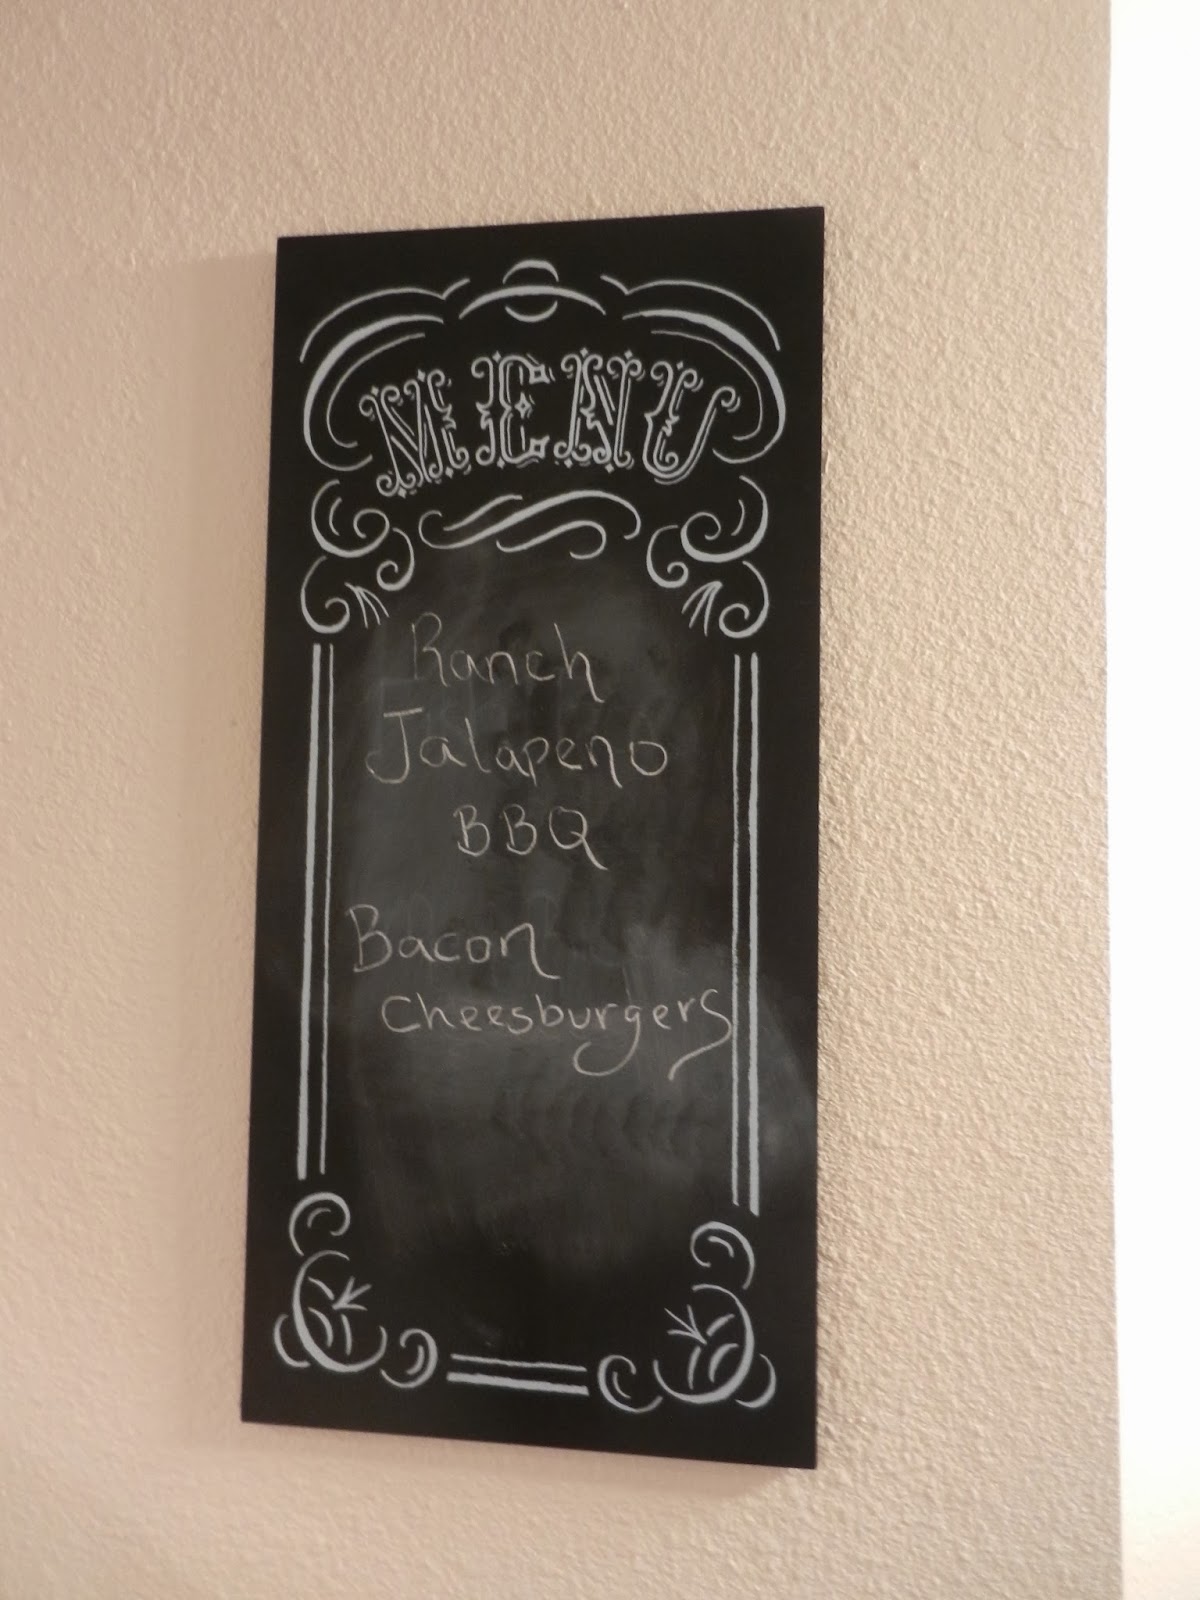 MENU
Ranch
Jalapeno
BBQ
Bacon
Cheesburgers